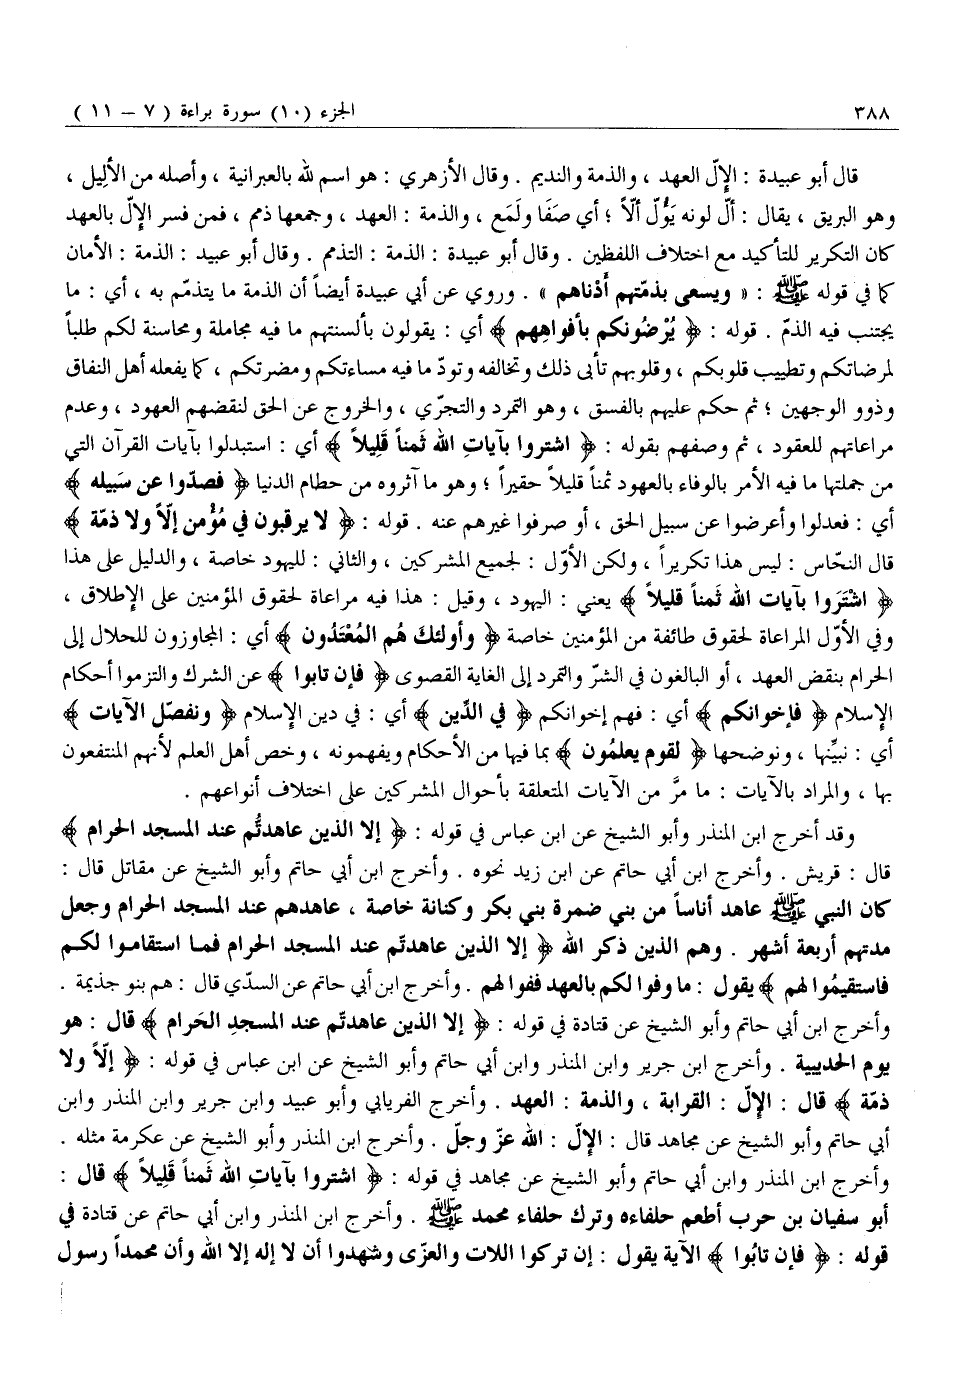 ٣٨٨ الجزء (١٠) سورة براءة ( ٧ – ١١ )
قال أبو عبيدة : الإِلّ العهد ، والذمة والنديم . وقال الأزهري : هو اسم لله بالعبرانية ، وأصله من الأَلِيل ،
وهو البريق ، يقال : ألّ لونه يَؤُلّ ألّاً ؛ أي صَفَا ولَمَع ، والذمة : العهد ، وجمعها ذمم ، فمن فسر الإِلّ بالعهد
كان التكرير للتأكيد مع اختلاف اللفظين . وقال أبو عبيدة : الذمة : التذمم . وقال أبو عبيد : الذمة : الأمان
كما في قوله ﷺ : « ويسعى بذمّتهم أدْناهم » . وروي عن أبي عبيدة أيضاً أن الذمة ما يتذمّم به ، أي : ما
يجتنب فيه الذمّ . قوله : ﴿ يُرْضُونكم بأفواههم ﴾ أي : يقولون بألسنتهم ما فيه مجاملة ومحاسنة لكم طلباً
لمرضاتكم وتطييب قلوبكم ، وقلوبهم تأبى ذلك وتخالفه وتودّ ما فيه مساءتكم ومضرتكم ، كما يفعله أهل النفاق
وذوو الوجهين ؛ ثم حكم عليهم بالفسق ، وهو التمرد والتجرّي ، والخروج عن الحق لنقضهم العهود ، وعدم
مراعاتهم للعقود ، ثم وصفهم بقوله : ﴿ اشتروا بآياتِ الله ثَمناً قَلِيلاً ﴾ أي : استبدلوا بآيات القرآن التي
من جملتها ما فيه الأمر بالوفاء بالعهود ثمناً قليلاً حقيراً ؛ وهو ما آثروه من حطام الدنيا ﴿ فصدّوا عن سَبيله ﴾
أي : فعدلوا وأعرضوا عن سبيل الحق ، أو صرفوا غيرهم عنه . قوله : ﴿ لا يرقبون في مُؤْمن إلّاً ولا ذمّة ﴾
قال النحّاس : ليس هذا تكريراً ، ولكن الأوّل : لجميع المشركين ، والثاني : لليهود خاصة ، والدليل على هذا
﴿ اشْتَرَوا بآيات الله ثَمناً قليلاً ﴾ يعني : اليهود ، وقيل : هذا فيه مراعاة لحقوق المؤمنين على الإطلاق ،
وفي الأوّل المراعاة لحقوق طائفة من المؤمنين خاصة ﴿ وأولئكَ هُم المُعْتَدُون ﴾ أي : المجاوزون للحلال إلى
الحرام بنقض العهد ، أو البالغون في الشرّ والتمرد إلى الغاية القصوى ﴿ فإن تابوا ﴾ عن الشرك والتزموا أحكام
الإسلام ﴿ فإخوانكم ﴾ أي : فهم إخوانكم ﴿ في الدِّين ﴾ أي : في دين الإسلام ﴿ ونفصّل الآيات ﴾
أي : نبيِّنها ، ونوضحها ﴿ لقوم يعلمُون ﴾ بما فيها من الأحكام ويفهمونه ، وخص أهل العلم لأنهم المنتفعون
بها ، والمراد بالآيات : ما مرَّ من الآيات المتعلقة بأحوال المشركين على اختلاف أنواعهم .
وقد أخرج ابن المنذر وأبو الشيخ عن ابن عباس في قوله : ﴿ إلا الذين عاهدتُّم عند المسجد الحرام ﴾
قال : قريش . وأخرج ابن أبي حاتم عن ابن زيد نحوه . وأخرج ابن أبي حاتم وأبو الشيخ عن مقاتل قال :
كان النبي ﷺ عاهد أناساً من بني ضمرة بني بكر وكنانة خاصة ، عاهدهم عند المسجد الحرام وجعل
مدتهم أربعة أشهر . وهم الذين ذكر الله ﴿ إلا الذين عاهدتّم عند المسجد الحرام فما استقامـوا لكـم
فاستقيمُوا لهم ﴾ يقول : ما وفوا لكم بالعهد ففوا لهم . وأخرج ابن أبي حاتم عن السدّي قال : هم بنو جذيمة .
وأخرج ابن أبي حاتم وأبو الشيخ عن قتادة في قوله : ﴿ إلا الذين عاهدتّم عند المسجدِ الحَرام ﴾ قال : هو
يوم الحديبية . وأخرج ابن جرير وابن المنذر وابن أبي حاتم وأبو الشيخ عن ابن عباس في قوله : ﴿ إلّاً ولا
ذمّة ﴾ قال : الإلّ : القرابة ، والذمة : العهد . وأخرج الفريابي وأبو عبيد وابن جرير وابن المنذر وابن
أبي حاتم وأبو الشيخ عن مجاهد قال : الإلّ : الله عزّ وجلّ . وأخرج ابن المنذر وأبو الشيخ عن عكرمة مثله .
وأخرج ابن المنذر وابن أبي حاتم وأبو الشيخ عن مجاهد في قوله : ﴿ اشتروا بآياتِ الله ثَمناً قَلِيلاً ﴾ قال :
أبو سفيان بن حرب أطعم حلفاءه وترك حلفاء محمد ﷺ . وأخرج ابن المنذر وابن أبي حاتم عن قتادة في
قوله : ﴿ فإن تابُوا ﴾ الآية يقول : إن تركوا اللات والعزّى وشهدوا أن لا إله إلا الله وأن محمداً رسول